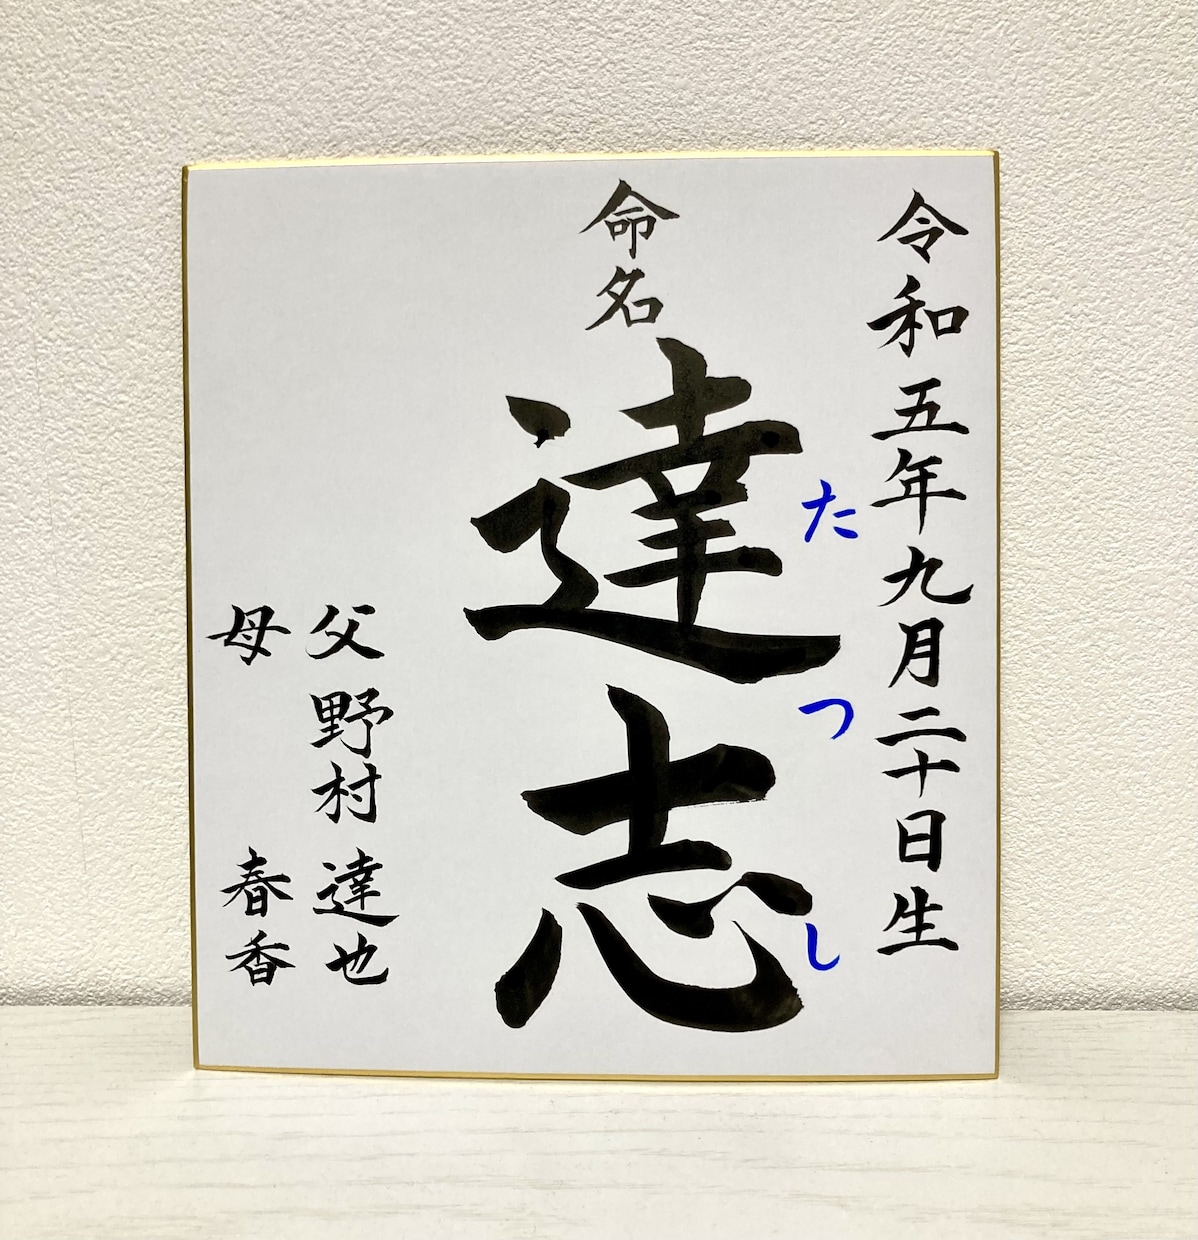 令和五年九月二十日生
命名
達志
たつし
父 野村 達也
母 春香